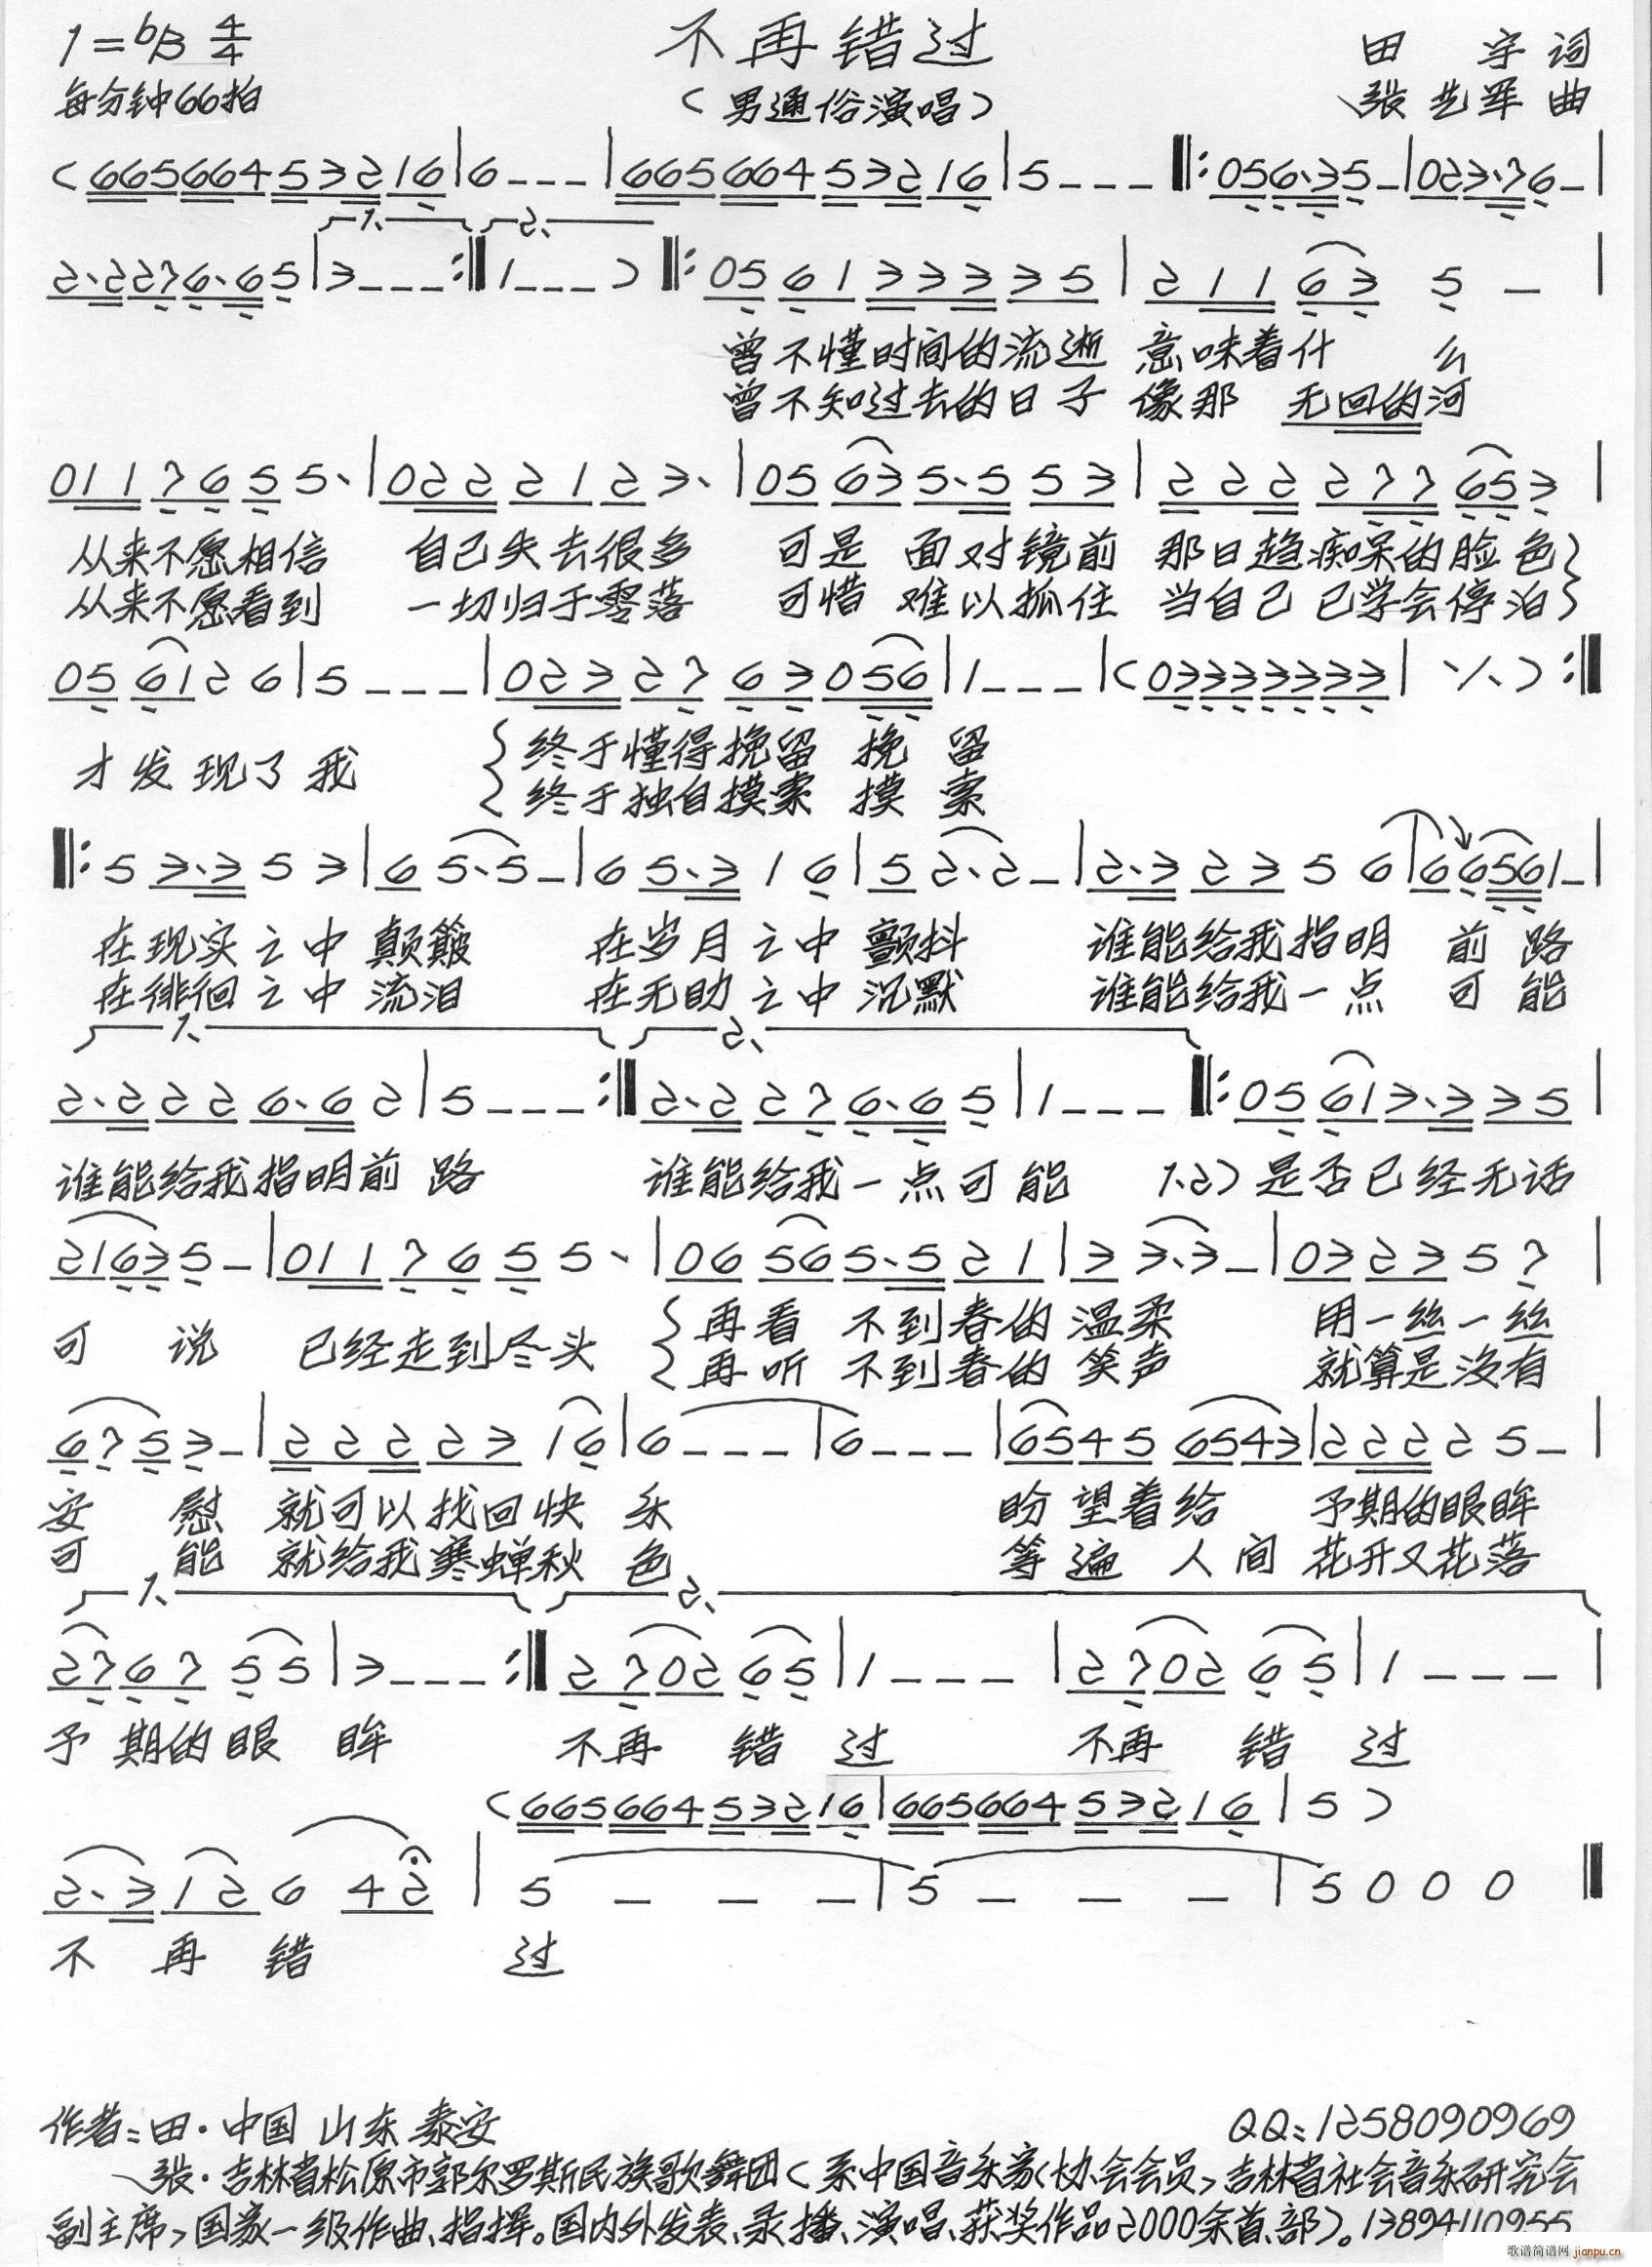 1=bB 4/4 不再错过 田 宇 词
每分钟66拍 （男通俗演唱） 张艺军 曲
(66566453216|6---|66566453216|5---‖:056·35-|023·76-|
1、 2、
2·2276·65|3---:‖1---)‖:0561333335|21163 5 -|
曾不懂时间的流逝 意味着什 么
曾不知过去的日子 像那 无回的河
0117655·|0222123·|05635·553|222277653|
从来不愿相信 自己失去很多 可是 面对镜前 那日趋痴呆的脸色}
从来不愿看到 一切归于零落 可惜 难以抓住 当自己 已学会停泊}
056126|5---|0232763056|1---|(03333333|٪)：‖
才发现了我 {终于懂得挽留 挽 留
{终于独自摸索 摸 索
‖:53·353|65·5-|65·316|52·2-|2·32356|66561-|
在现实之中 颠簸 在岁月之中 颤抖 谁能给我指明 前 路
在徘徊之中 流泪 在无助之中 沉默 谁能给我一点 可 能
1、 2、
2·2226·62|5---:‖2·2276·65|1---‖:05613·335|
谁能给我指明前 路 谁能给我一点可 能 1、2)是否已经无话
21635-|0117655·|06565·521|33·3-|032357|
可 说 已经走到尽头 {再看 不到春的 温柔 用一丝一丝
{再听 不到春的 笑声 就算是没有
6753-|2222316|6---|6---|65456543|22225-|
安 慰 就可以找回快 乐 盼望着给 予期的眼眸
可 能 就给我寒蝉秋 色 等遍 人间 花开又花落
1、 2、
276755|3---:‖270265|1---|270265|1---|
予 期的眼 眸 不再 错 过 不再 错 过
(66566453216|66566453216|5)
2·312642|5---|5---|5000‖
不 再 错 过
作者：田·中国 山东 泰安 QQ：1258090969
张·吉林省松原市郭尔罗斯民族歌舞团(系中国音乐家(协会会员,吉林省社会音乐研究会
副主席,国家一级作曲、指挥。国内外发表、录播、演唱、获奖作品2000余首、部)。13894110955
歌谱简谱网 jianpu.cn